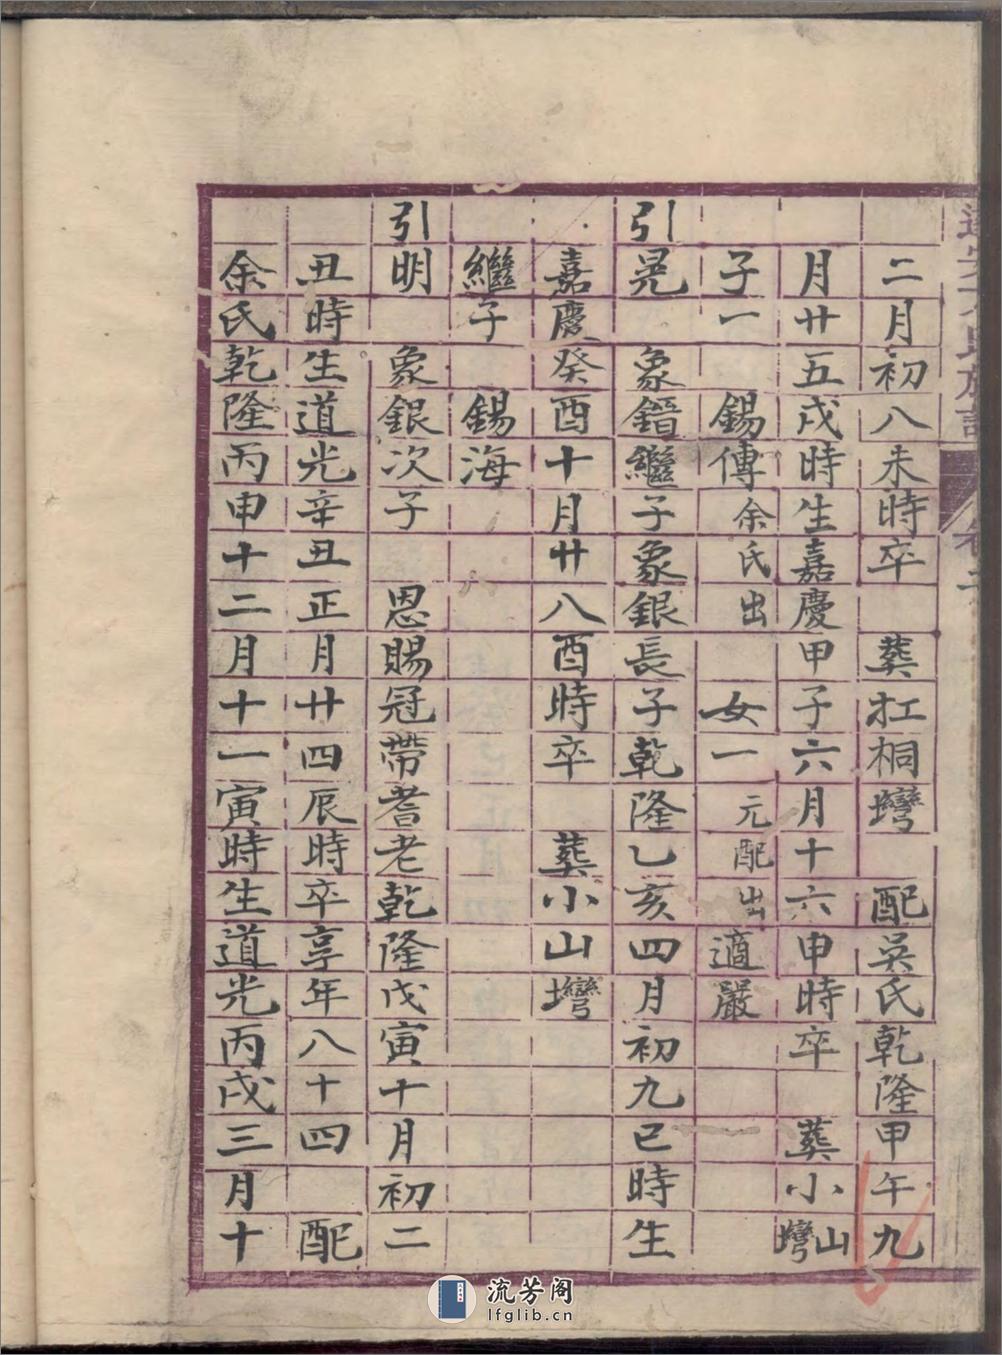 二月初八未時卒 葬扛桐壪 配吳氏乾隆甲午九
月廿五戌時生嘉慶甲子六月十六申時卒 葬小山壪
子一 錫傳余氏出 女一元配出適嚴
引晃 象鐕繼子象銀長子乾隆乙亥四月初九巳時生
嘉慶癸酉十月廿八酉時卒 葬小山壪
繼子 錫海
引明 象銀次子 恩賜冠帶耆老乾隆戊寅十月初二
丑時生道光辛丑正月廿四辰時卒享年八十四 配
余氏乾隆丙申十二月十一寅時生道光丙戌三月十
流芳阁
lfglib.cn